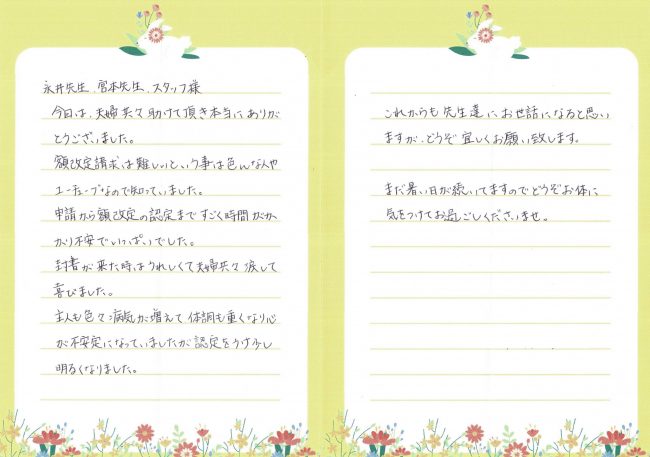 永井先生、宮本先生、スタッフ様
今日は、夫婦共々助けて頂き本当にありが
とうございました。
額改定請求は難しいという事は色んな人や
ユーチューブなので知っていました。
申請から額改定の認定まですごく時間がか
かり不安でいっぱいでした。
封書が来た時はうれしくて夫婦共々涙して
喜びました。
主人も色々病気が増えて体調も重くなり心
が不安定になっていましたが認定をうけ少し
明るくなりました。
これからも先生達にお世話になると思い
ますが、どうぞ宜しくお願い致します。
まだ暑い日が続いてますのでどうぞお体に
気をつけてお過ごしくださいませ。